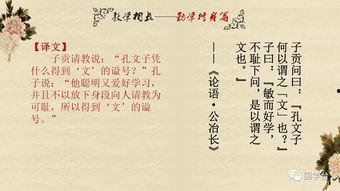 教学相长——勤学修身篇
子贡问曰：“孔文子
何以谓之‘文’也？”
子曰：“敏而好学，
不耻下问，是以谓之
文也。”
——《论语·公冶长》
【译文】
子贡请教说：“孔文子凭
什么得到‘文’的谥号？”孔
子说：“他聪明又爱好学习，
并且不以放下身段向人请教为
可耻，所以得到‘文’的谥
号。”